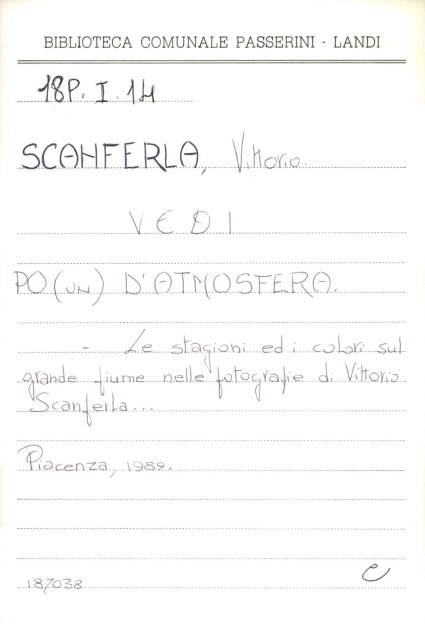 BIBLIOTECA COMUNALE PASSERINI - LANDI
18P. I. 14
SCANFERLA, Vittorio.
VEDI
PO (UN) D'ATMOSFERA.
- Le stagioni ed i colori sul
grande fiume nelle fotografie di Vittorio
Scanferla...
Piacenza, 1989.
187038
e